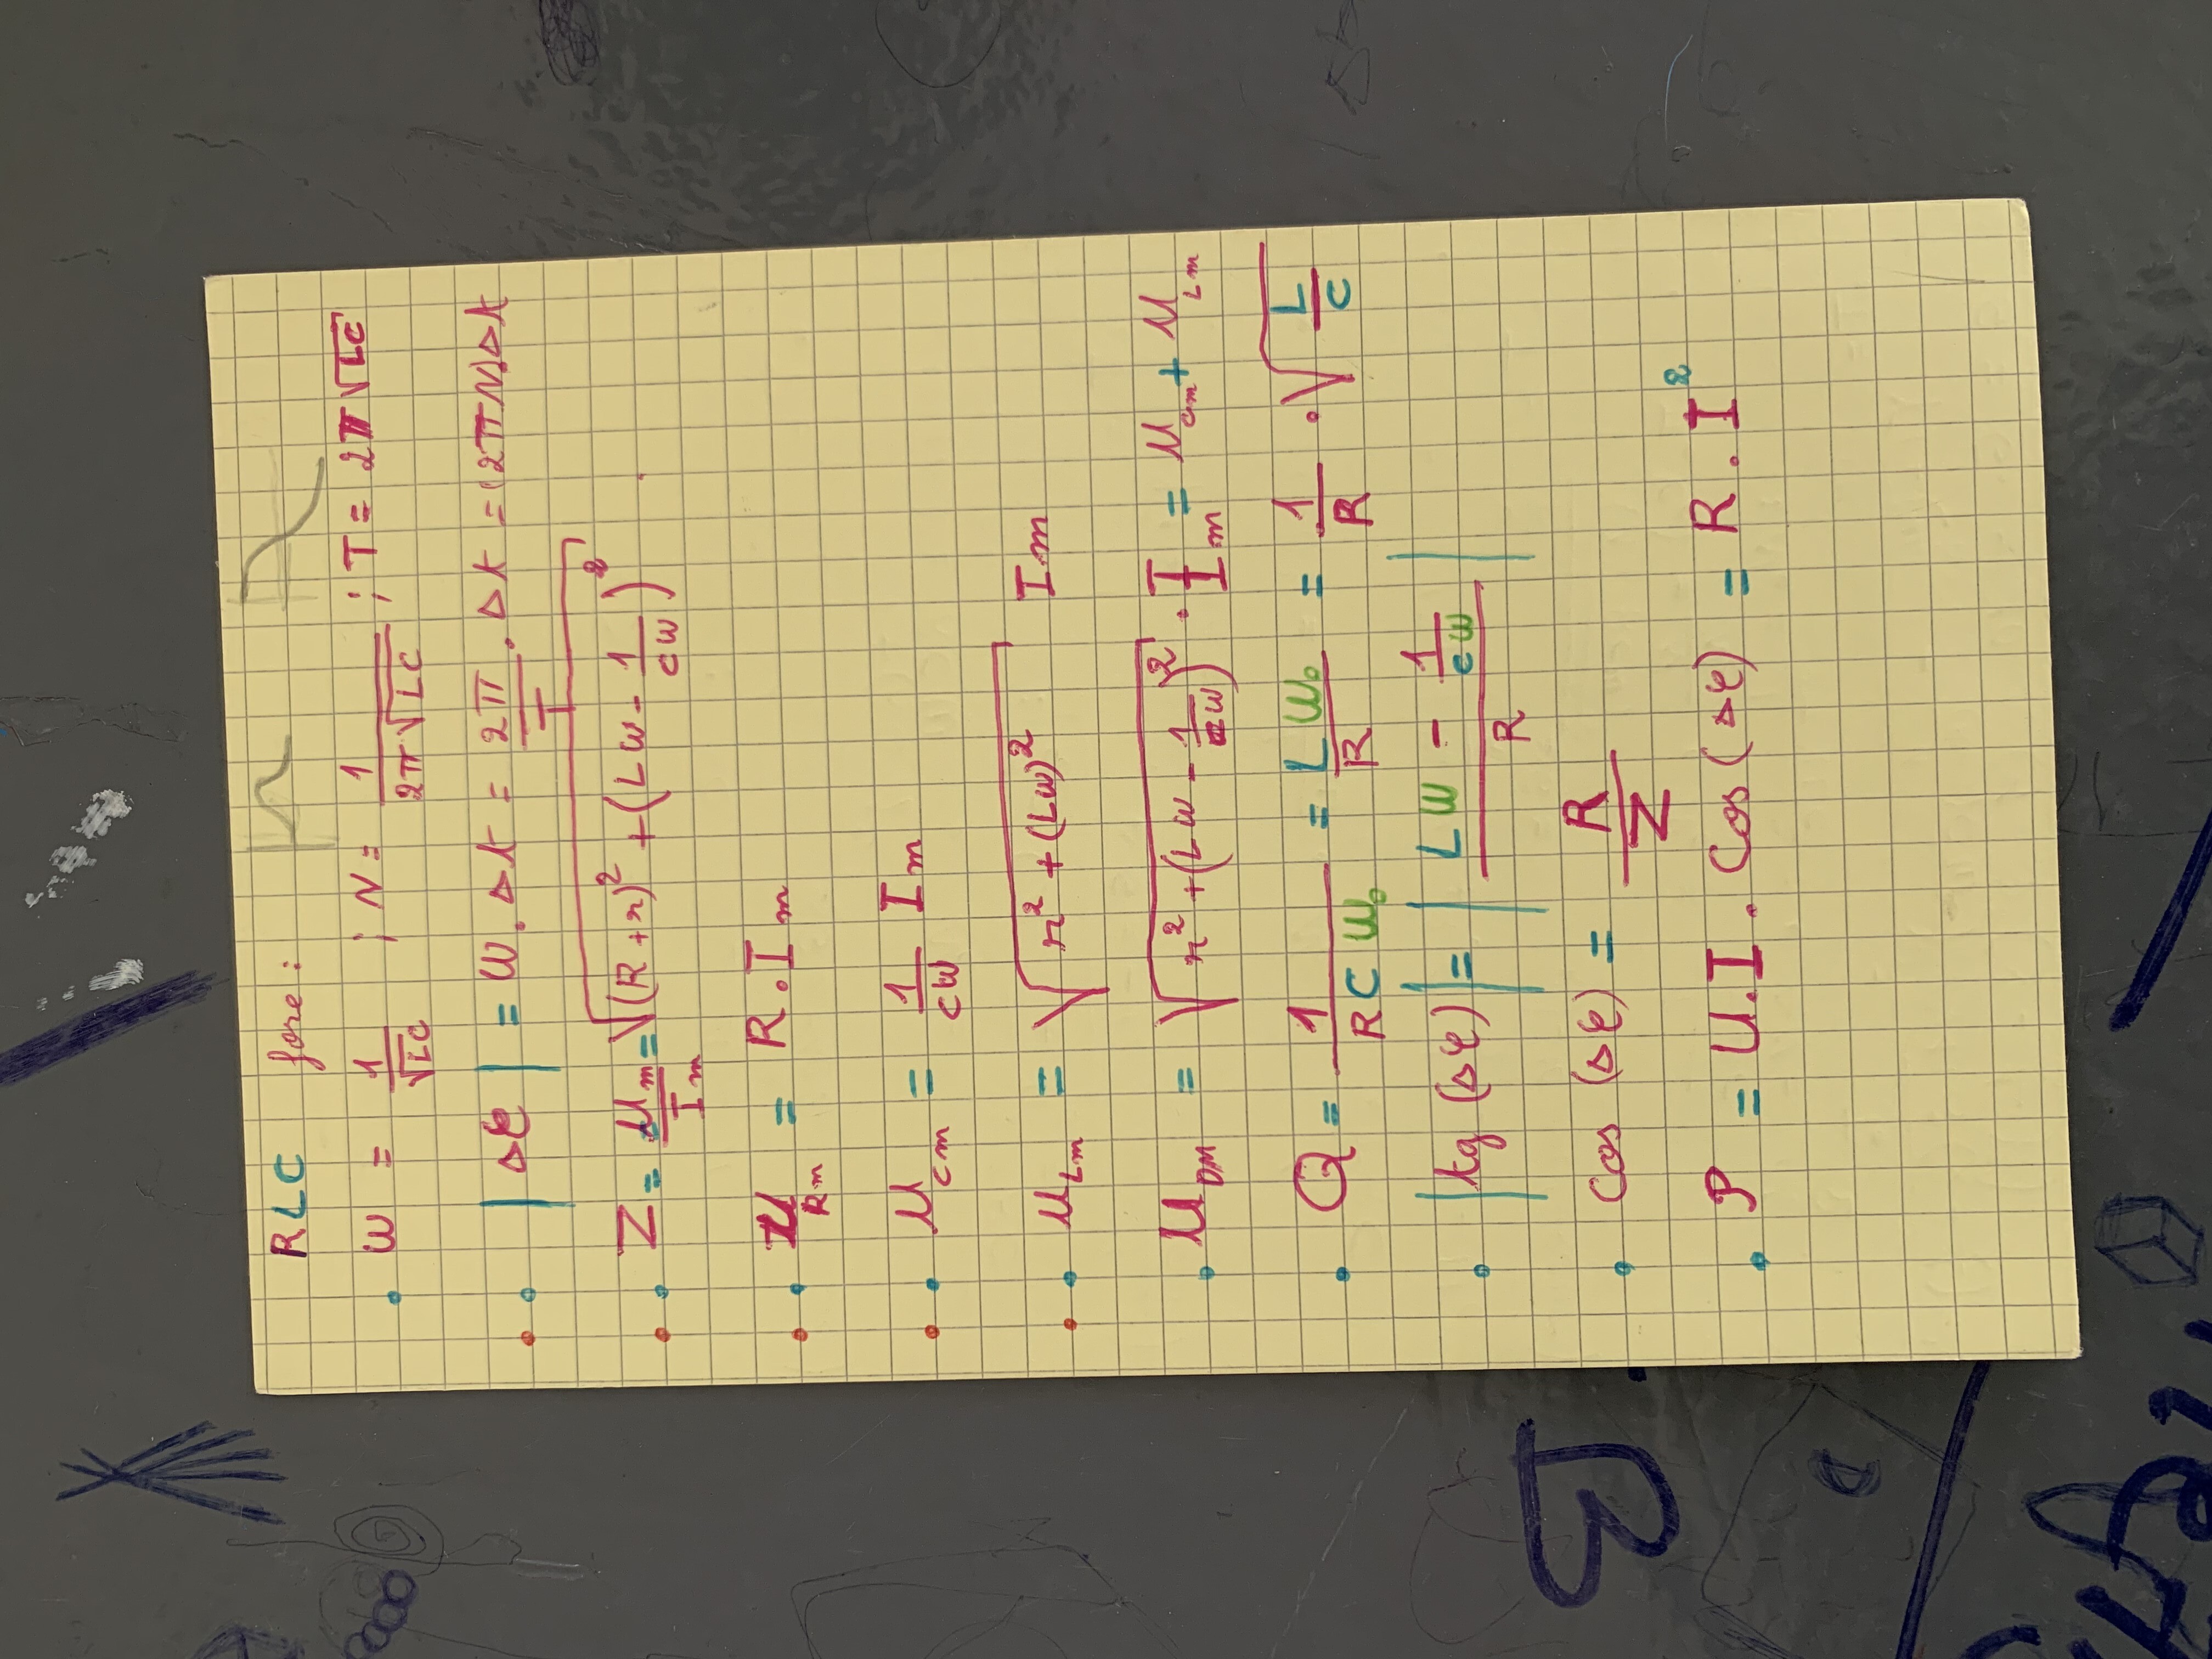 RLC forc :
• W = 1/√LC ; N = 1/2π√LC ; T = 2π√LC
• • |Δφ| = W . Δt = 2π/T . Δt = (2πN)Δt
• • Z = Um/Im = √(R + r)² + (LW - 1/CW)²
• • U_Rm = R . Im
• • U_Cm = 1/CW Im
• • U_Lm = √r² + (Lω)² Im
• U_DM = √r² + (LW - 1/CW)² . Im = U_Cm + U_Lm
• Q = 1/RCW₀ = LW₀/R = 1/R . √L/C
• |tg (Δφ)| = |LW - 1/CW / R|
• Cos (Δφ) = R/Z
• P = U.I . Cos (Δφ) = R . I²